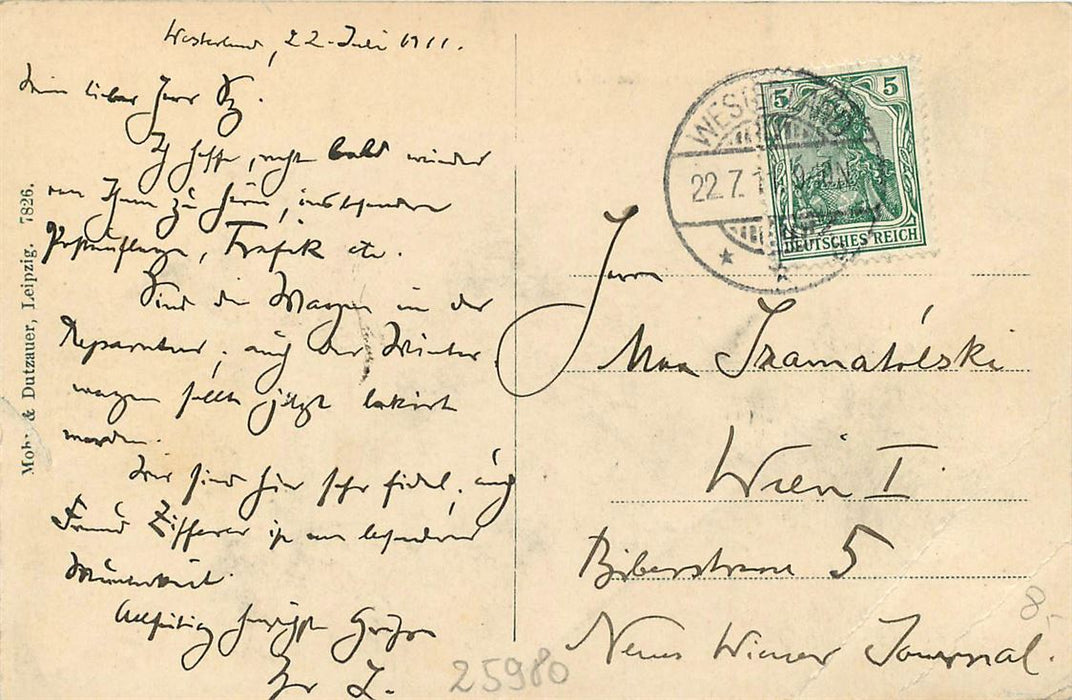 Westerland, 22. Juli 1911.
Mein lieber Herr Sz.
Ich hoffe, recht bald wieder
von Ihnen zu hören, insbesondere
Postauflage, Trafik etc.
Sind die Wagen in der
Reparatur; auch der Winter
wagen sollte jetzt lakirt
werden.
Wir sind hier sehr fidel; auch
Freund Zifferer ist von besonderer
Munterkeit.
Allseitig herzigste Grüße
Ihr L.
Mohr & Dutzauer, Leipzig. 7826.
WESTERLAND
22.7.11
5 5
DEUTSCHES REICH
Herrn
Max Szamatólski
Wien I
Biberstrasse 5
Neues Wiener Journal.
25980
8.-